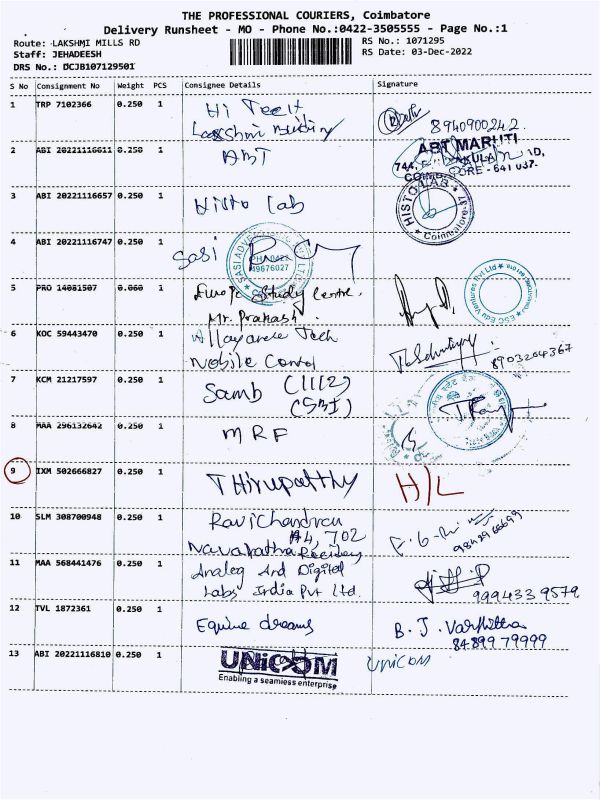 THE PROFESSIONAL COURIERS, Coimbatore
Delivery Runsheet - MO - Phone No.:0422-3505555 - Page No.:1
Route: LAKSHMI MILLS RD
RS No.: 1071295
Staff: JEHADEESH
RS Date: 03-Dec-2022
DRS No.: DCJB107129501
S No Consignment No Weight PCS Consignee Details Signature
1 TRP 7102366 0.250 1 Hi Tech
Lakshmi Building
8940900242.
2 ABI 20221116611 0.250 1 ABT
ABT MARUTI
3 ABI 20221116657 0.250 1 Histo Lab
HISTO LAB Coimbatore-37
4 ABI 20221116747 0.250 1 Sasi
PH: 0422
49676027
5 PRO 14081507 0.060 1 Europe Study Centre.
Mr. Prakash.
ESC Edu Ventures Pvt Ltd
6 KOC 59443470 0.250 1
Mobile Control
8903204367
7 KCM 21217597 1 Samb (1112)
(SBI)
8 MAA 296132642 0.250 1 MRF
9 IXM 502666827 0.250 1 Thirupatthy H/L
10 SLM 308700948 0.250 1 Ravichandran
A4, 702
Navaratna Recidency
11 MAA 568441476 0.250 1 Analog And Digital
Labs India Pvt Ltd.
9994339579
12 TVL 1872361 0.250 1 Equine dreams B. J. Varshitha
84899 79999
13 ABI 20221116810 0.250 1 UNICOM UNICOM
Enabling a seamless enterprise